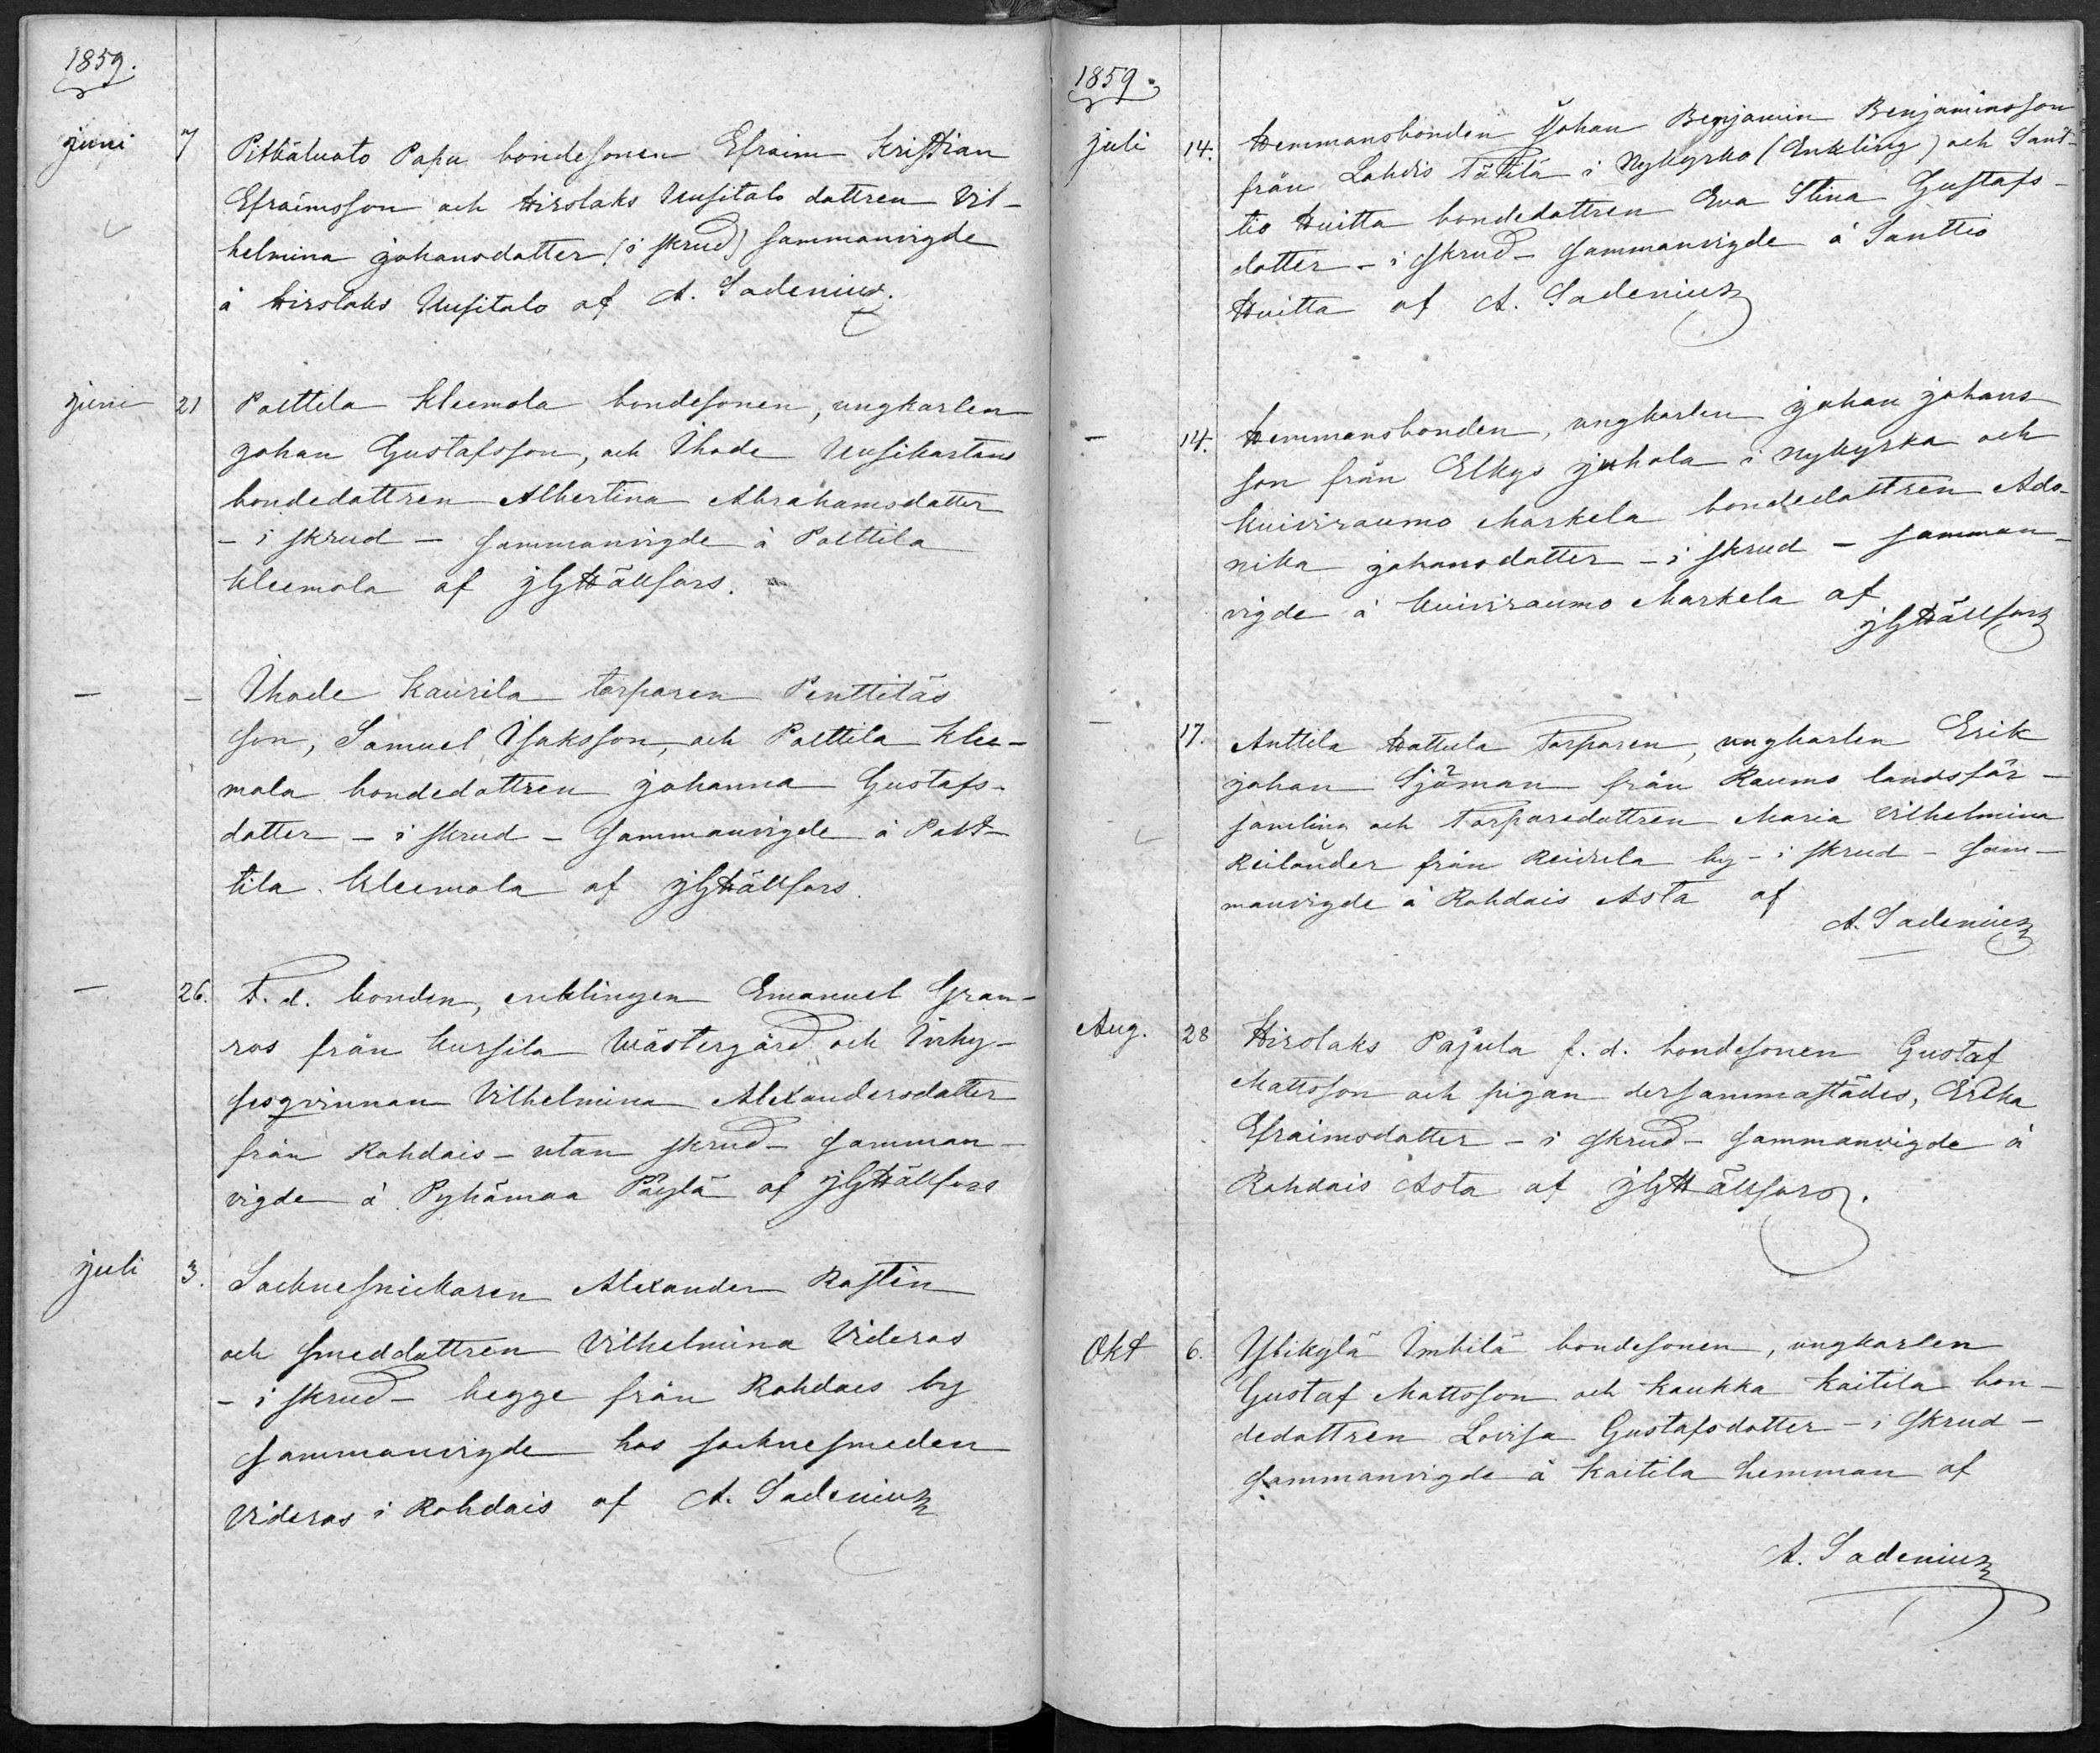 1859.
juni 7 Pitkäluoto Papu bondesonen Efraim Kristian
Efraimsson och Hirslaks Uusitalo dottren Vil-
helmina Johansdotter (i skrud) sammanvigde
å Hirslaks Uusitalo af A. Sadenius.
juni 21 Polttila Kleemola bondesonen, ungkarlen
Johan Gustafsson, och Ihode Uusikartano
bondedottren Albertina Abrahamsdotter
- i skrud - sammanvigde å Polttila
Kleemola af JG Hällfors.
- - Ihode Kaurila torparen Penttiläs
son, Samuel Isaksson, och Polttila Klee-
mola bondedottren Johanna Gustafs-
dotter - i skrud - sammanvigde å Polt-
tila Kleemola af JG Hällfors.
- 26. F. d. bonden, enklingen Emanuel Gran-
ros från Kursila Wästergård och Inhy-
sesqvinnan Vilhelmina Alexandersdotter
från Rohdais - utan skrud - samman-
vigde å Pyhämaa Päylä af JG Hällfors
juli 3. Socknesnickaren Alexander Rostén
och smeddottren Vilhelmina Videros
- i skrud - begge från Rohdais by
sammanvigde hos socknesmeden
Videros i Rohdais af A. Sadenius
1859.
juli 14. Hemmansbonden Johan Benjamin Benjaminsson
från Lahdis Tätilä i Nykyrko (Enkling) och Sant-
tio Huitta bondedottren Eva Stina Gustafs-
dotter - i skrud - sammanvigde å Santtio
Huitta af A. Sadenius
- 14. Hemmansbonden, ungkarlen Johan Johans
son från Elkys Juhola i Nykyrka och
Kuiviraumo Markela bondedottren Ado-
nika Johansdotter - i skrud - samman-
vigde å Kuiviraumo Markela af
JG Hällfors
- 17. Anttila Hattula Torparen, ungkarlen Erik
Johan Sjöman från Raumo landsför-
samling och Torparedottren Maria Vilhelmina
Reilander från Reidila by - i skrud - sam-
manvigde å Rohdais Asta af
A. Sadenius
Aug. 28 Hirslaks Pajula f. d. bondesonen Gustaf
Mattsson och pigan dersammastädes, Erika
Efraimsdotter - i skrud - sammanvigde å
Rohdais Asta af JG Hällfors.
Okt 6. Ylikylä Imbilä bondesonen, ungkarlen
Gustaf Mattsson och Kaukka Kaitila bon-
dedottren Lovisa Gustafsdotter - i skrud -
sammanvigde å Kaitila hemman af
A. Sadenius